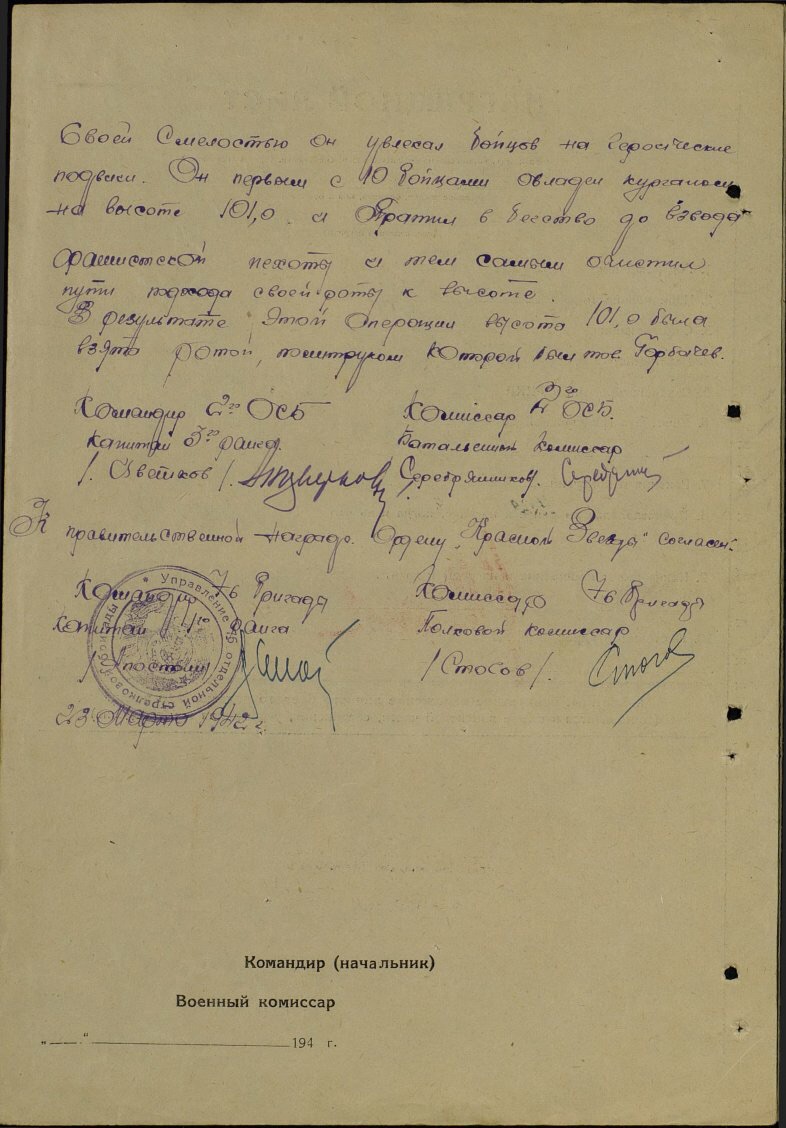 Своей смелостью он увлекал бойцов на героические
подвиги. Он первым с 10 бойцами овладел курганом
на высоте 101,0 и обратил в бегство до взвода
фашистской пехоты и тем самым очистил
пути подхода своей роты к высоте.
В результате этой операции высота 101,0 была
взята ротой, политруком которой был тов. Горбачев.
Командир 2го ОСБ Комиссар 2го ОСБ.
капитан 3го ранга. Батальонный комиссар
/. Цветков /. Серебрянников/.
К правительственной награде. Ордену "Красной Звезды" согласен.
Командир 7й бригады Комиссар 7й бригады
Капитан 1го ранга Полковой комиссар
/ Стосов /.
23 марта 1942 г.
Управление отдельной стрелковой бригады
Командир (начальник)
Военный комиссар
„ “ 194 г.